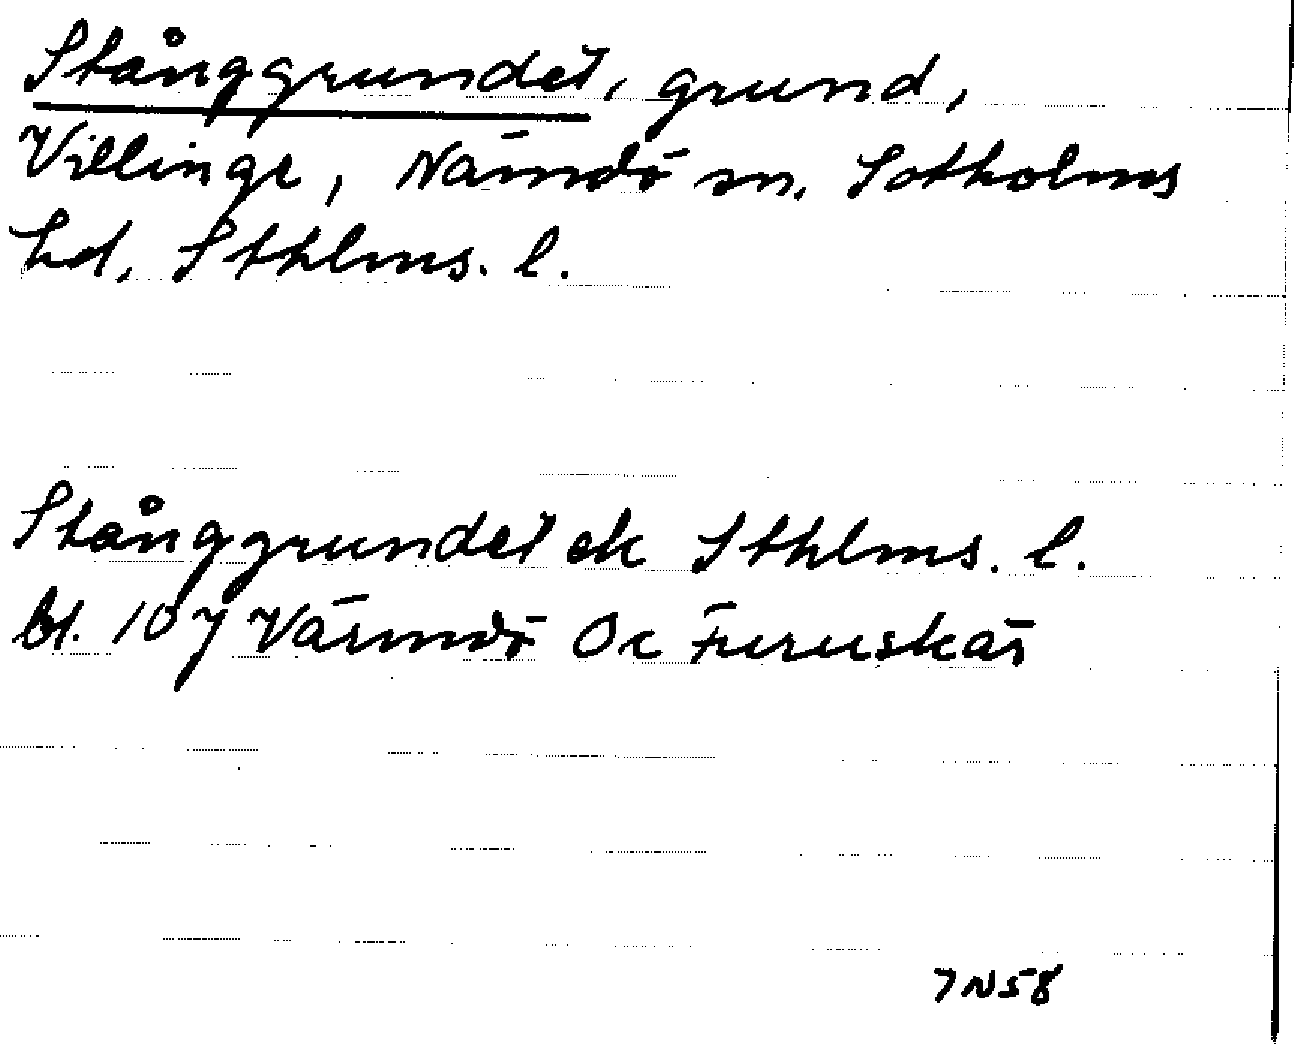 Stånggrundet, grund,
Villinge, Nämdö sn. Sotholms
hd. Sthlms. l.
Stånggrundet ek Sthlms. l.
bl. 107 Värmdö Oc Furuskär
7N58